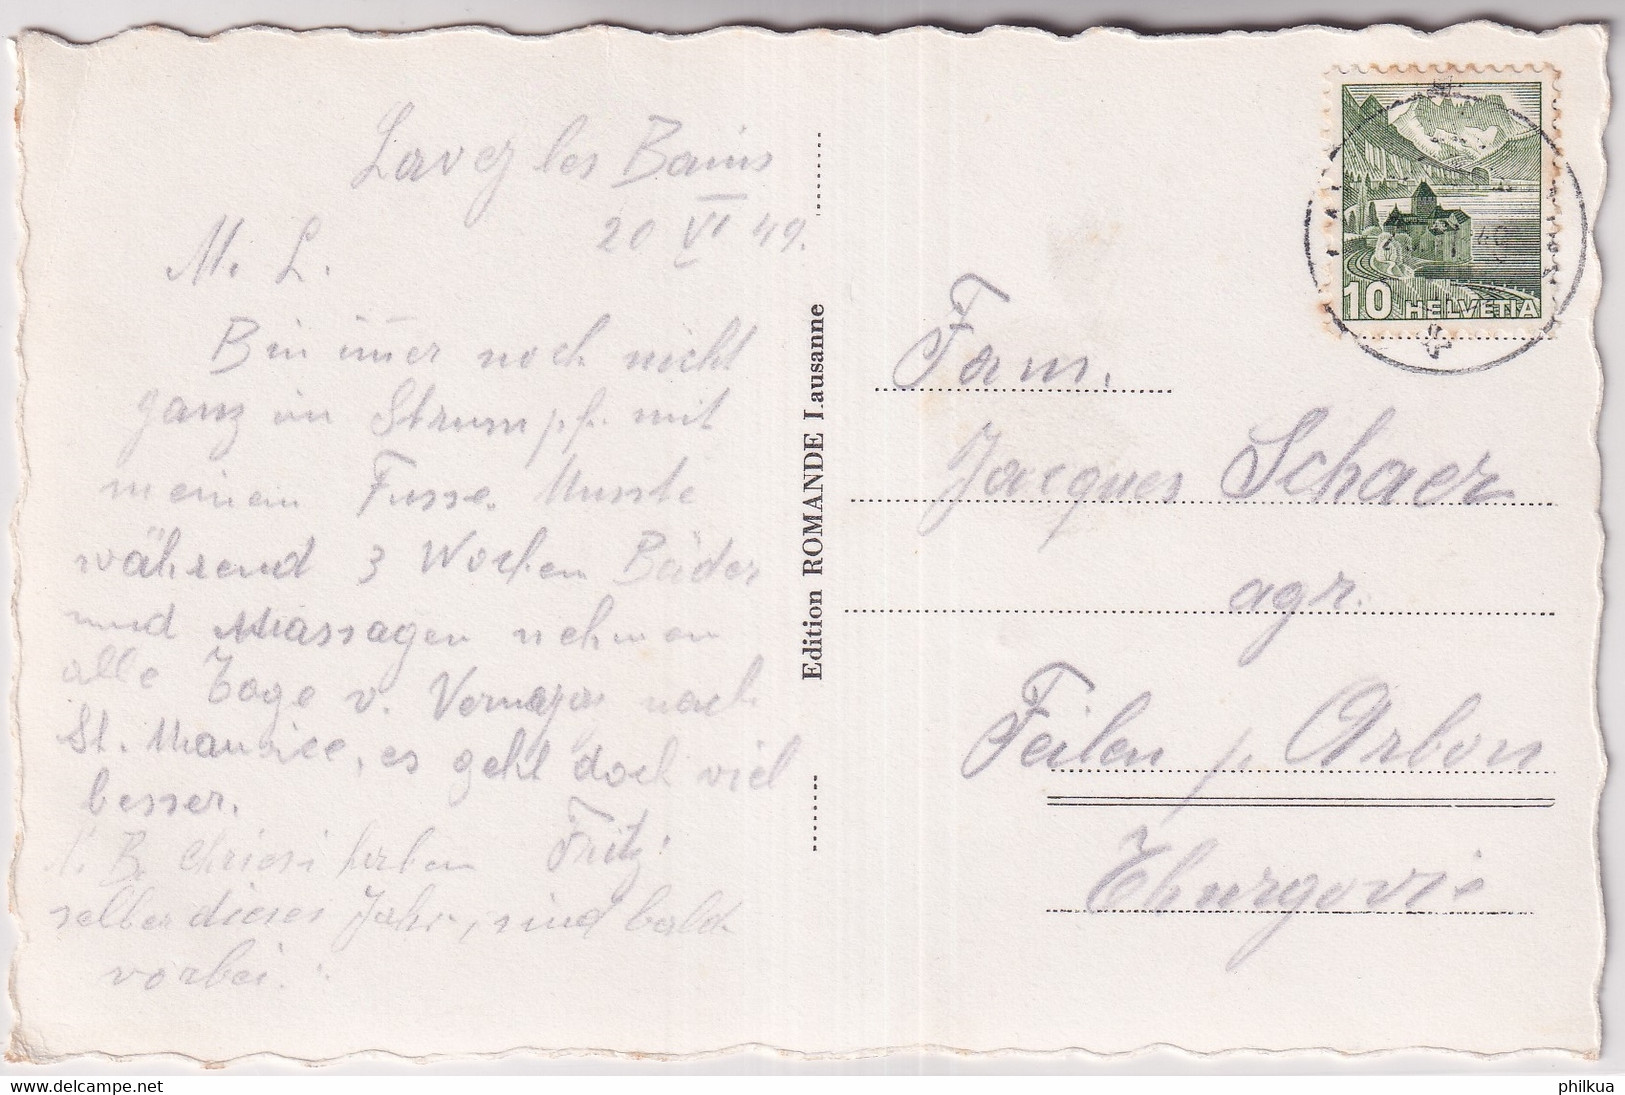 Lavey les Bains
20 VI 49.
M. L.
Bin immer noch nicht
ganz im Strumpf. mit
meinem Fusse. Musste
während 3 Wochen Bäder
und Massagen nehmen
alle Tage v. Vernayaz nach
St. Maurice, es geht doch viel
besser.
Fritz.
N. B. Chriesi haben
selber dieses Jahr, sind bald
vorbei.
Edition ROMANDE Lausanne
10 HELVETIA
Fam.
Jacques Schaer
agr.
Feilen p. Arbon
Thurgovie
www.delcampe.net
philkua